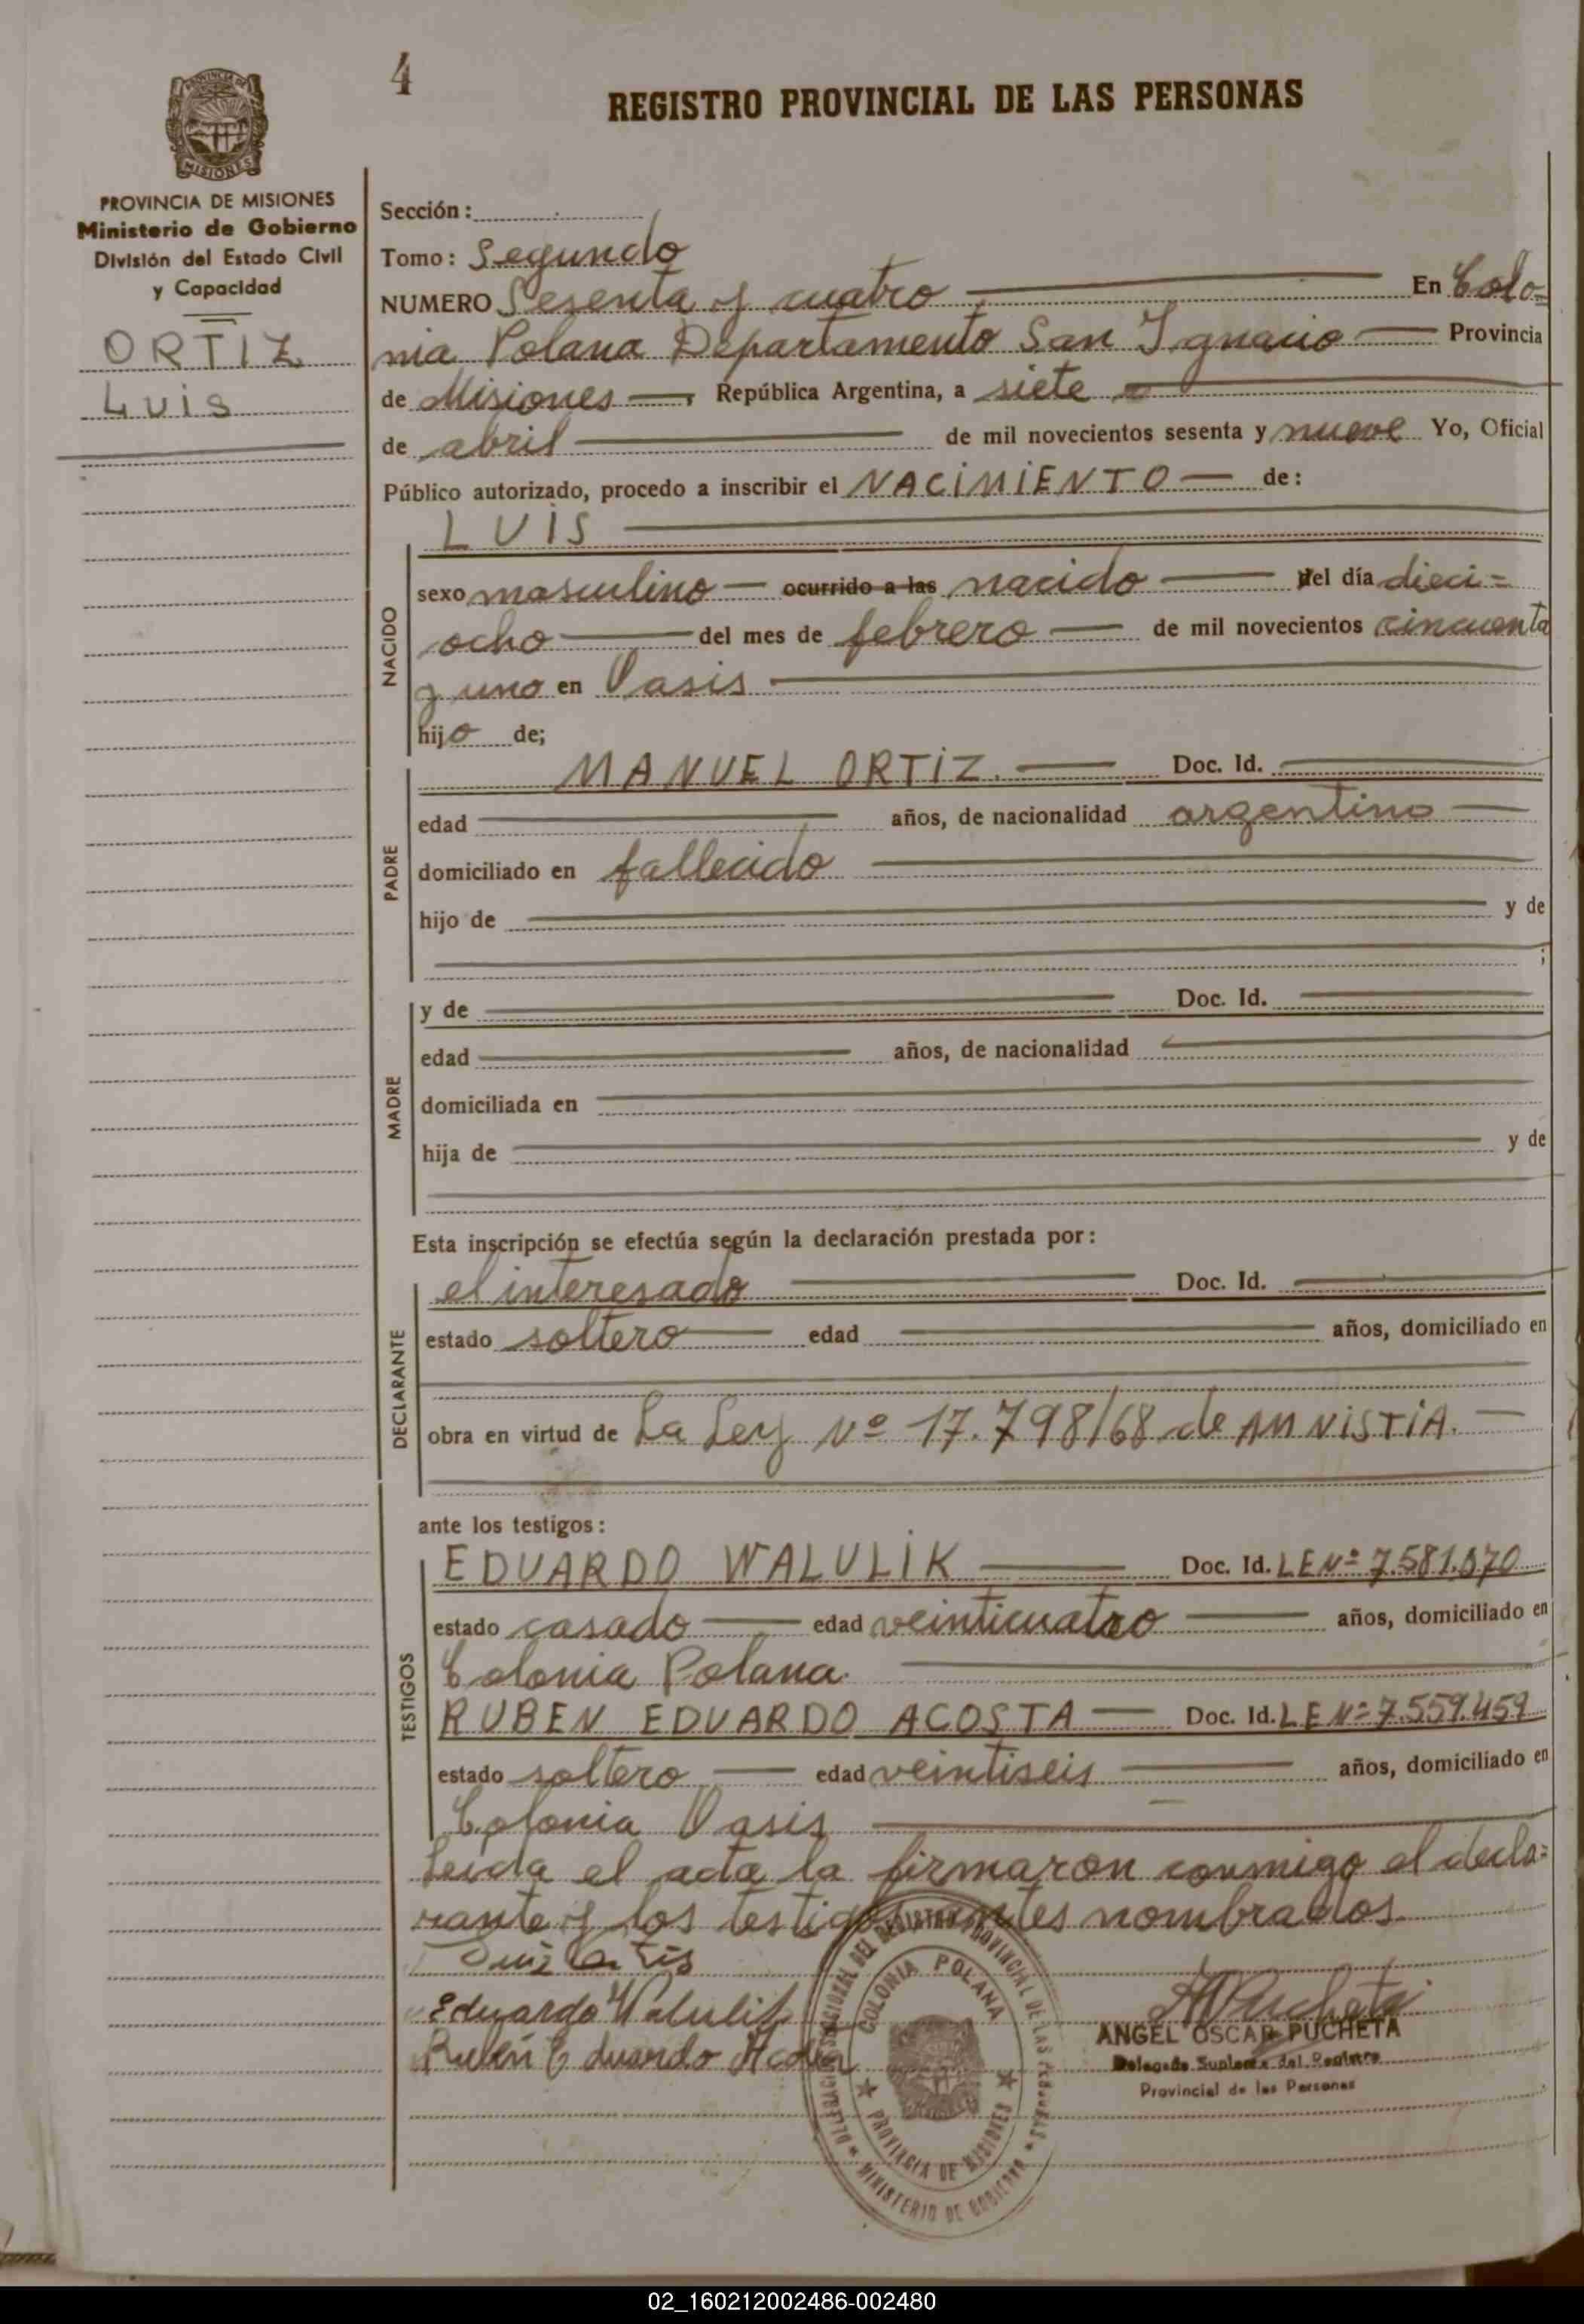 4
REGISTRO PROVINCIAL DE LAS PERSONAS
PROVINCIA DE MISIONES
Ministerio de Gobierno
División del Estado Civil
y Capacidad
ORTIZ
LUIS
Sección:
Tomo: Segundo
NUMERO Sesenta y cuatro En Colo=
nia Polana Departamento San Ignacio Provincia
de Misiones República Argentina, a siete
de abril de mil novecientos sesenta y nueve Yo, Oficial
Público autorizado, procedo a inscribir el NACIMIENTO de:
NACIDO
LUIS
sexo masculino ocurrido a las nacido del día dieci=
ocho del mes de febrero de mil novecientos cincuenta
y uno en Oasis
hijo de;
PADRE
MANUEL ORTIZ. Doc. Id.
edad años, de nacionalidad argentino
domiciliado en fallecido
hijo de y de
;
MADRE
y de Doc. Id.
edad años, de nacionalidad
domiciliada en
hija de y de
Esta inscripción se efectúa según la declaración prestada por:
DECLARANTE
el interesado Doc. Id.
estado soltero edad años, domiciliado en
obra en virtud de La Ley Nº 17.798/68 de AMNISTIA.
ante los testigos:
TESTIGOS
EDUARDO WALULIK Doc. Id. LE Nº 7.581.070
estado casado edad veinticuatro años, domiciliado en
Colonia Polana.
RUBEN EDUARDO ACOSTA Doc. Id. LE Nº 7.559.459
estado soltero edad veintiseis años, domiciliado en
Colonia Oasis
Leída el acta la firmaron conmigo el decla=
rante y los testigos antes nombrados.
Luis Ortis
Eduardo Walulik
Rubén Eduardo Acosta
APucheta
ANGEL OSCAR PUCHETA
Delegado Suplente del Registro
Provincial de las Personas
COLONIA POLANA
PROVINCIA DE MISIONES
MINISTERIO DE GOBIERNO
02_160212002486-002480